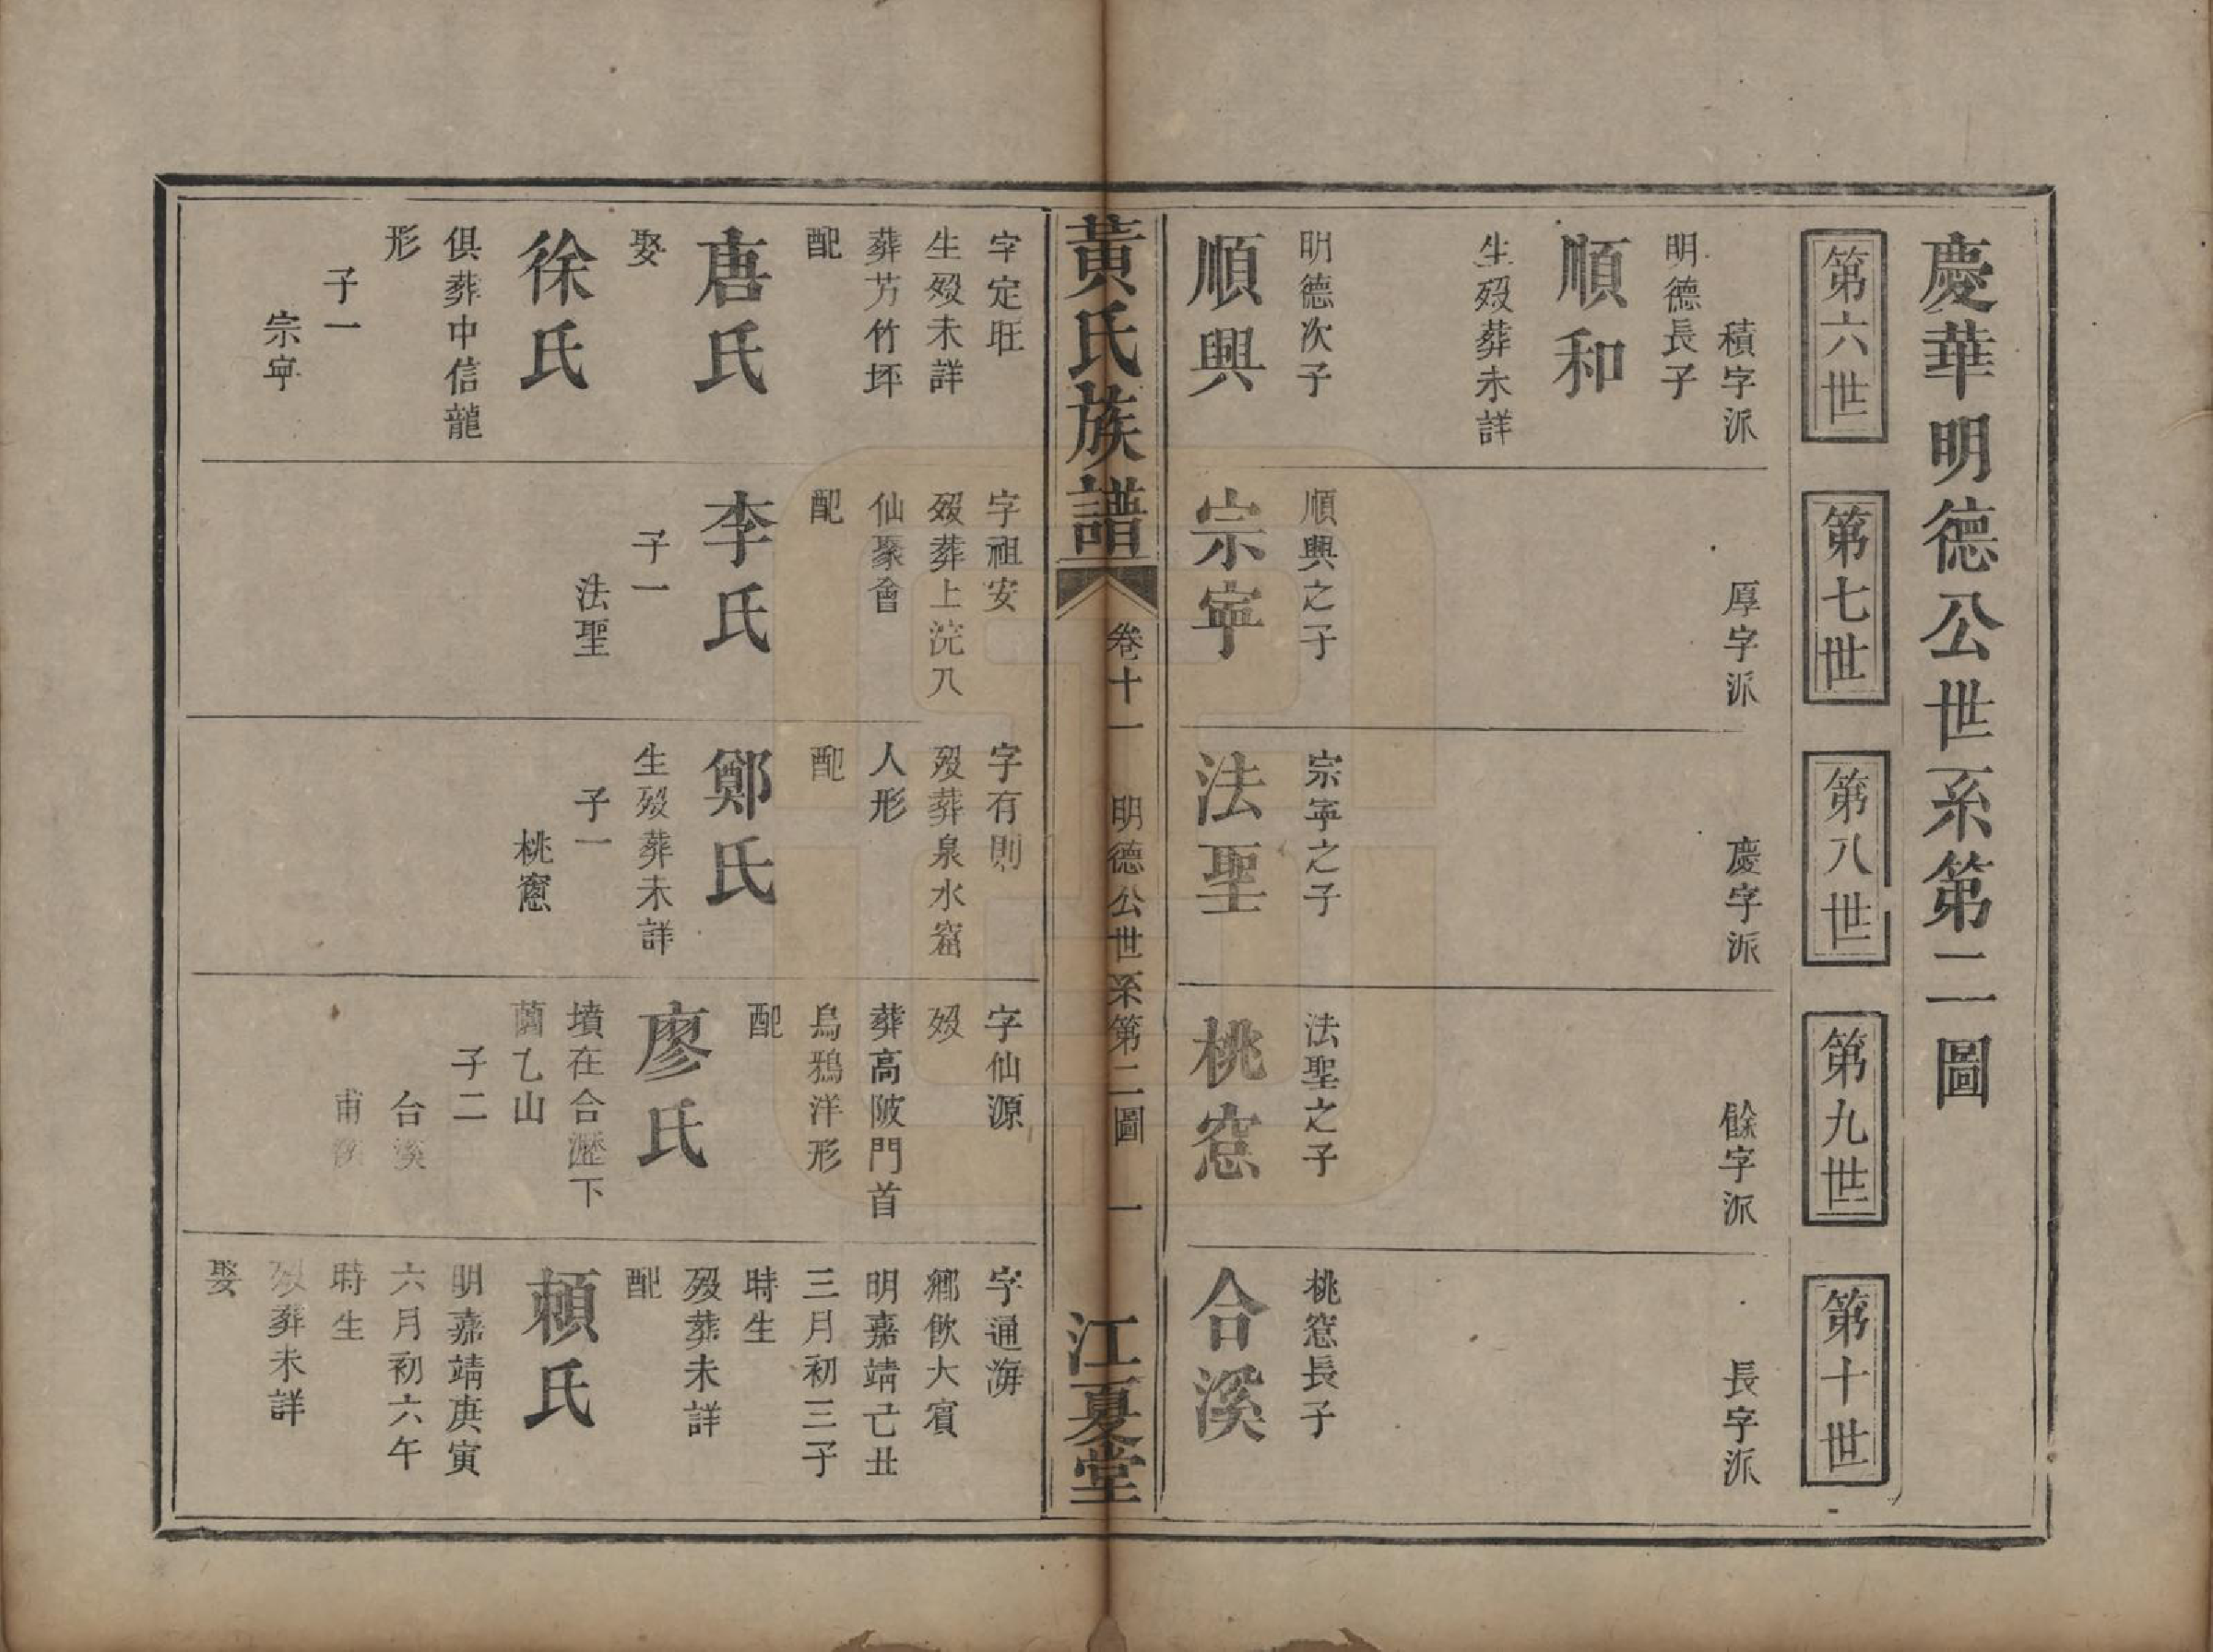 慶華明德公世系第二圖
第六世
第七世
第八世
第九世
第十世
積字派
明德長子
順和
生歿葬未詳
明德次子
順興
厚字派
順興之子
宗寧
慶字派
宗寧之子
法聖
餘字派
法聖之子
桃窓
長字派
桃窓長子
合溪
黃氏族譜
卷十一
明德公世系第二圖
一
江夏堂
字定旺
生歿未詳
葬芳竹坪
配
唐氏
娶
徐氏
俱葬中信龍
形
子一
宗寧
字祖安
歿葬上浣八
仙聚會
配
李氏
子一
法聖
字有則
歿葬泉水窩
人形
配
鄭氏
生歿葬未詳
子一
桃窻
字仙源
歿
葬高陂門首
烏鴉洋形
配
廖氏
墳在合瀝下
乙山
子二
台溪
甫溪
字通海
鄉飲大賓
明嘉靖己丑
三月初三子
時生
歿葬未詳
配
賴氏
明嘉靖庚寅
六月初六午
時生
歿葬未詳
娶